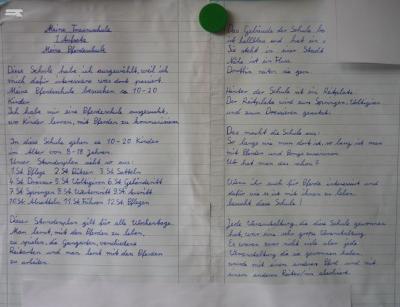 Meine Traumschule
I Aufsatz
Meine Pferdeschule
Diese Schule habe ich ausgewählt, weil ich
mich dafür interessiere was dort passiert.
Meine Pferdeschule besuchen ca 10-20
Kinder
Ich habe mir eine Pferdeschule ausgesucht,
wo Kinder lernen, mit Pferden zu kommunizieren
In diese Schule gehen ca 10-20 Kinder
im Alter von 8-18 Jahren.
Unser Stundenplan sieht so aus:
1.St. Pflege 2.St. Putzen 3.St. Satteln
4.St. Dressur 5.St. Voltigieren 6.St. Geländeritt
7.St. Springen 8.St. 9.St. Ausritt
10.St. Absatteln 11.St. Führen 12.St. Pflegen
Dieser Stundenplan gilt für alle Wochentage.
Man lernt, mit den Pferden zu leben,
zu spielen, die Gangarten, verschiedene
Reitarten und man lernt mit den Pferden
zu arbeiten.
Das Gebäude der Schule
ist hellblau und hat ein
Sie steht in einer Stadt
Nähe ist ein Fluss
Dorthin reiten sie gern.
Hinter der Schule ist ein Reitplatz.
Der Reitplatz wird zum Springen, Voltigieren
und zum Dressieren genutzt.
Das macht die Schule aus:
So lange wie man dort ist, so lang ist man
mit Pferden und Ponys zusammen.
Ist das schön?
Wenn ihr euch für Pferde interessiert und
dafür was es ist mit ihnen zu leben,
besucht diese Schule!
Jede Veranstaltung, die diese Schule gewonnen
hat, war eine sehr große Veranstaltung.
Es waren zwar nicht viele aber jede
Veranstaltung die sie gewonnen haben
wurde mit einem anderen Pferd und mit
einem anderen Reiter/in absolviert.